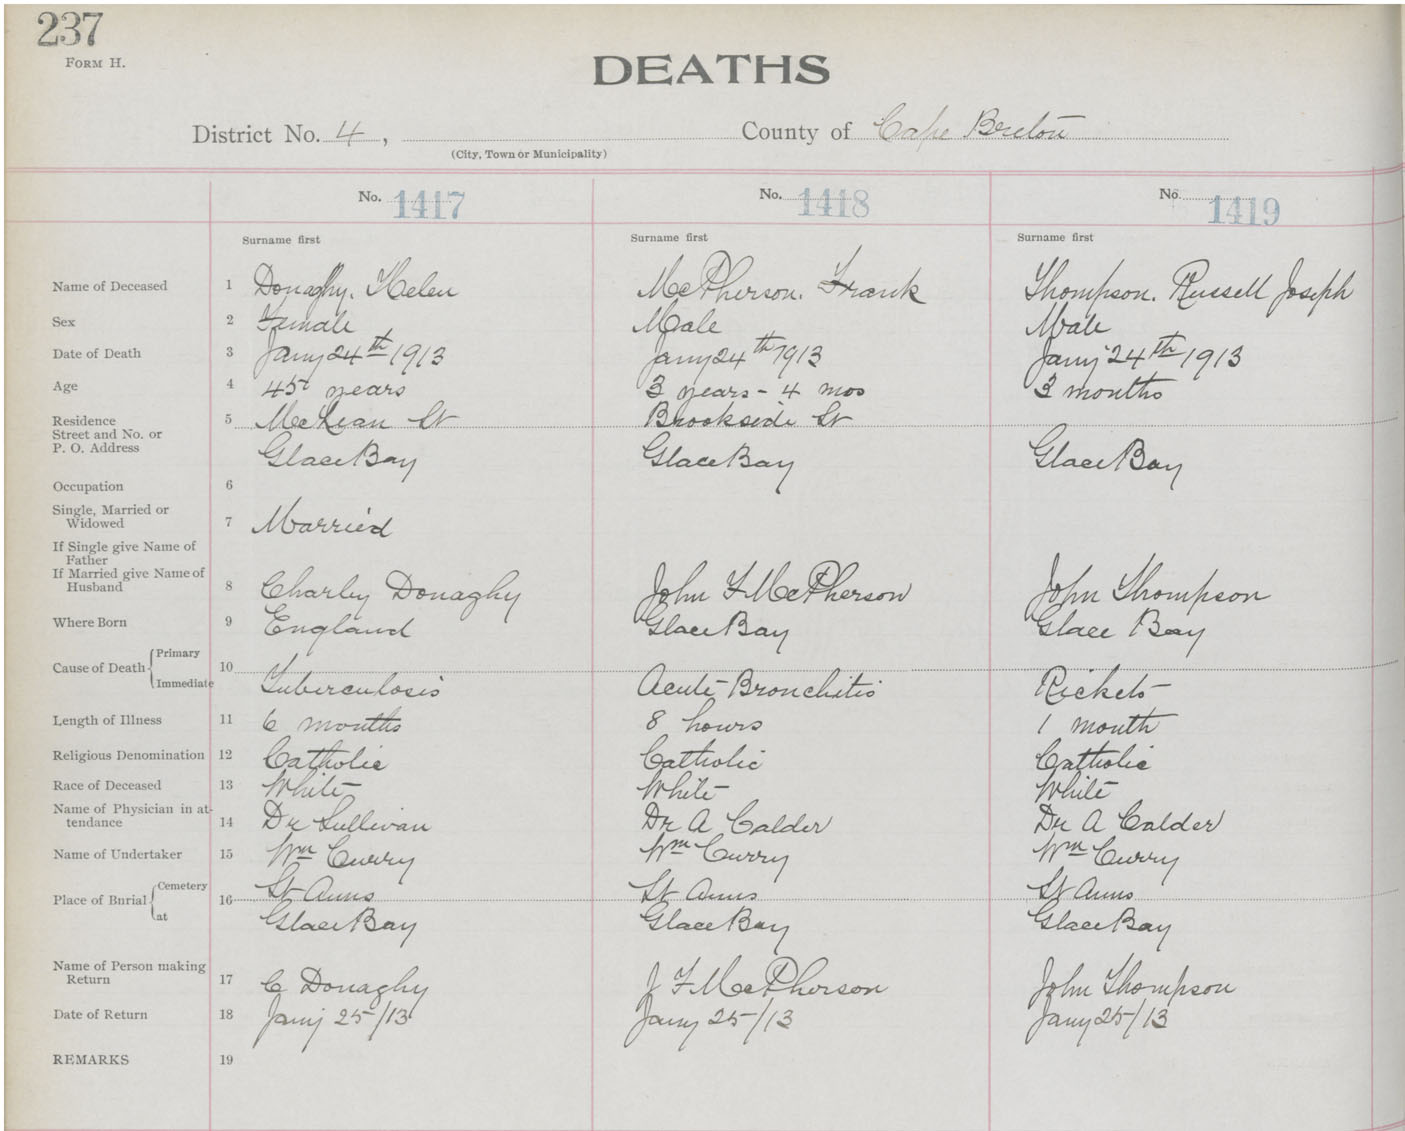 237
FORM H.
DEATHS
District No. 4, County of Cape Breton
(City, Town or Municipality)
No. 1417 No. 1418 No. 1419
Surname first Surname first Surname first
Name of Deceased 1 Donaghy, Helen McPherson, Frank Thompson, Russell Joseph
Sex 2 Female Male Male
Date of Death 3 Jany 24th 1913 Jany 24th 1913 Jany 24th 1913
Age 4 45 years 3 years - 4 mos 3 months
Residence 5 McLean St Brookside St
Street and No. or
P. O. Address Glace Bay Glace Bay Glace Bay
Occupation 6
Single, Married or
Widowed 7 Married
If Single give Name of
Father
If Married give Name of
Husband 8 Charley Donaghy John F McPherson John Thompson
Where Born 9 England Glace Bay Glace Bay
Cause of Death { Primary 10
Immediate Tuberculosis Acute Bronchitis Rickets
Length of Illness 11 6 months 8 hours 1 month
Religious Denomination 12 Catholic Catholic Catholic
Race of Deceased 13 White White White
Name of Physician in at-
tendance 14 Dr Sullivan Dr A Calder Dr A Calder
Name of Undertaker 15 Wm Curry Wm Curry Wm Curry
Place of Burial { Cemetery 16 St Anns St Anns St Anns
at Glace Bay Glace Bay Glace Bay
Name of Person making
Return 17 C Donaghy J F McPherson John Thompson
Date of Return 18 Jany 25/13 Jany 25/13 Jany 25/13
REMARKS 19